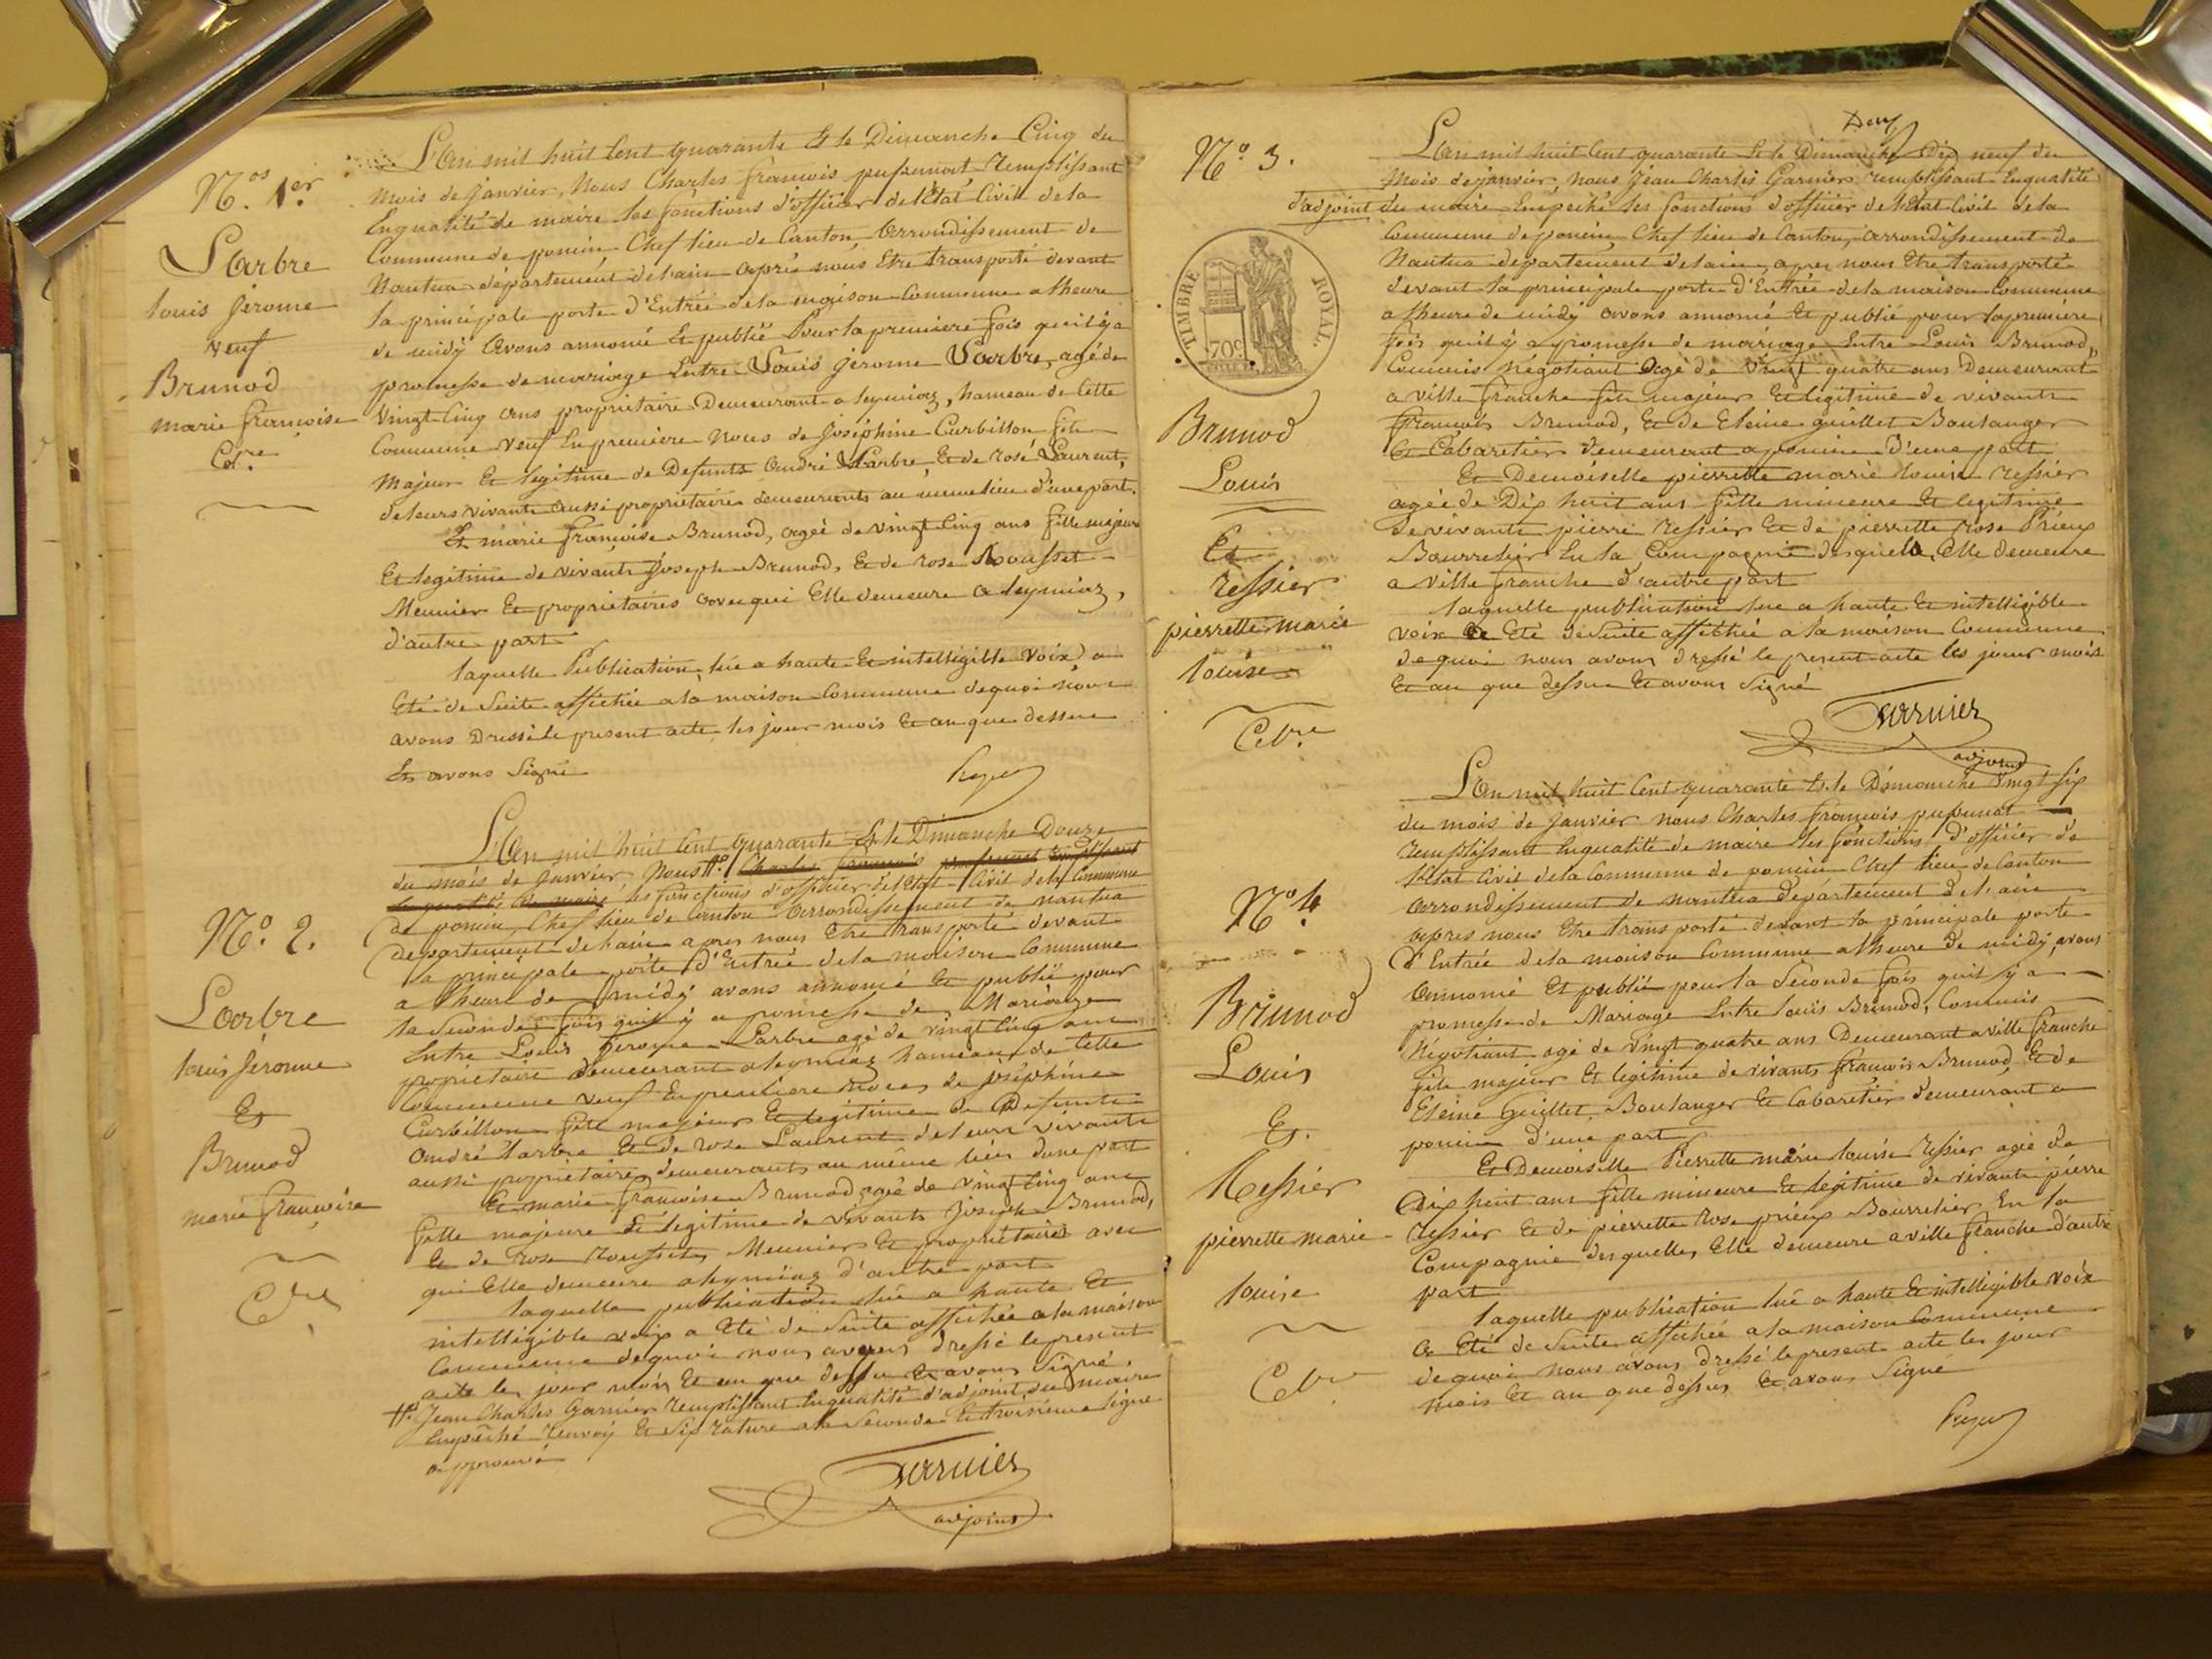 Nos. 1er.
Larbre
louis jérome
veuf
Brunod
marie françoise
L'An mil huit Cent quarante Et le Dimanche Cinq du
mois de janvier, Nous Charles françois remplissant
Enqualité de maire les fonctions d'officier de l'Etat Civil de la
Commune de poncin Chef lieu de Canton, Arrondissement de
Nantua département delain après nous Etre transporté devant
la principale porte d'Entrée dela maison Commune a lheure
de midy avons annoncé Et publié Pour la premiere fois quil y a
promesse de mariage Entre Louis jerome Larbre, agé de
vingt Cinq ans propriétaire Demeurant a leymiaz, hameau de Cette
Commune veuf En premiere Noces de joséphine Curbillon fils
majeur Et legitime de Defunts André Larbre, Et de rose Laurent,
deleurs vivants aussi propriétaire demeurants au même lieu d'une part.
Et marie françoise Brunod, agée de vingt Cinq ans fille majeure
Et legitime de vivants joseph Brunod, Et de rose Rousset
Meunier Et propriétaires avec qui Elle demeure a leymiaz,
d'autre part
laquelle Publication, lue a haute Et intelligible voix, a
Eté de Suite affichée a la maison Commune dequoi nous
avons Dressé le present acte, les jour mois Et an que dessus
Et avons Signé
No. 2.
Larbre
louis jérome
Et
Brunod
marie françoise
L'An mil huit Cent quarante Et le Dimanche Douze
du mois de janvier Nous Charles françois remplissant
En qualité de maire les fonctions d'officier de l'Etat Civil de la Commune
de poncin, Chef lieu de Canton Arrondissement de nantua
département delain apres nous Etre transporté devant
la principale porte d'Entrée dela maison Commune
a lheure de midy avons annoncé Et publié pour
la Seconde fois quil y a promesse de Mariage
Entre Louis jerome Larbre agé de vingt Cinq ans
propriétaire demeurant a leymiaz hameau de Cette
Commune veuf En premiere noces de joséphine
Curbillon fils majeur Et legitime de Defunts
André Larbre Et de rose Laurent deleurs vivants
aussi propriétaires demeurants au même lieu dune part
Et marie françoise Brunod, agée de vingt Cinq ans
fille majeure Et legitime de vivants joseph Brunod,
Et de rose rousset, Meunier Et propriétaires avec
qui Elle demeure a leymiaz d'autre part
laquelle publication lue a haute Et
intelligible voix a Eté de Suite affichée a la maison
Commune dequoi nous avons dressé le present
acte les jour mois Et an que dessus Et avons Signé.
Jean Charles Garnier remplissant Enqualité d'adjoint du maire
Empêché renvoy Et Six rature a la Seconde Et troisième ligne
approuvé
Garnier
adjoint
No. 3.
TIMBRE ROYAL.
70c
Brunod
Louis
Et
ressier
pierrette marie
louise
L'An mil huit Cent quarante Et le Dimanche Dix neuf du
Mois de janvier, nous Jean Charles Garnier remplissant Enqualité
d'adjoint du maire Empeché les fonctions d'officier de l'Etat Civil dela
Commune de poncin, Chef lieu de Canton, arrondissement de
Nantua département delain, apres nous Etre transporté
devant la principale porte d'Entrée dela maison Commune
a lheure de midy avons annoncé Et publié pour la premiere
fois quil y a promesse de mariage Entre Louis Brunod,
Commis Négotiant Agé de vingt quatre ans Demeurant
a ville franche fils majeur Et legitime de vivants
françois Brunod, Et de Eleine guillet Boulanger
Et Cabaretier demeurant a poncin D'une part
Et Demoiselle pierrette marie Louise ressier
agée de Dix huit ans fille mineure Et legitime
de vivants pierre ressier Et de pierrette rose Prieux
Bourrelier En la Compagnie desquels, Elle demeure
a ville franche d'autre part
laquelle publication lue a haute Et intelligible
voix a Eté de Suite affichée a la maison Commune
de quoi nous avons dressé le present acte les jour mois
Et an que dessus Et avons Signé
Garnier
adjoint
No. 4
Brunod
Louis
Et.
Ressier
pierrette marie
louise
L'An mil huit Cent quarante Et le Dimanche vingt Six
du mois de janvier nous Charles françois
remplissant Enqualité de maire les fonctions d'officier de
l'Etat Civil dela Commune de poncin Chef lieu de Canton
arrondissement de nantua département delain
apres nous Etre transporté devant la principale porte
d'Entrée dela maison Commune a lheure de midy, avons
annoncé Et publié pour la Seconde fois quil y a
promesse de Mariage Entre louis Brunod, Commis
Négotiant agé de vingt quatre ans Demeurant a ville franche
fils majeur Et legitime de vivants françois Brunod Et de
Eleine Guillet Boulanger Et Cabaretier demeurant a
poncin d'une part
Et Demoiselle Pierrette marie louise ressier agée de
Dix huit ans fille mineure Et legitime de vivants pierre
ressier Et de pierrette rose prieux Bourrelier En la
Compagnie desquelles, Elle demeure a ville franche d'autre
part
laquelle publication lue a haute Et intelligible voix
a Eté de Suite affichée a la maison Commune
de quoi nous avons dressé le present acte les jour
mois Et an que dessus Et avons Signé